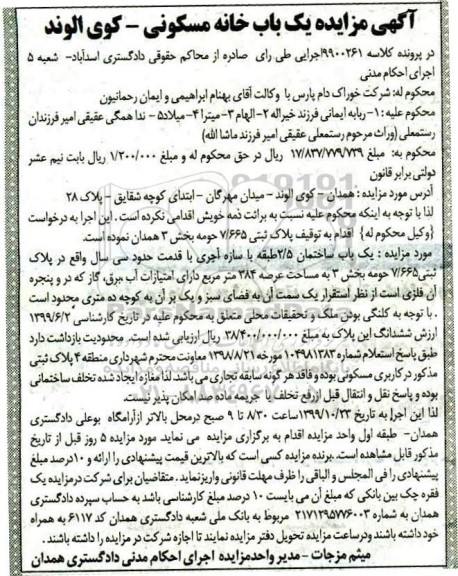 آگهی مزایده یک باب خانه مسکونی - کوی الوند
در پرونده کلاسه ۹۹۰۰۲۶۱اجرایی طی رای صادره از محاکم حقوقی دادگستری اسدآباد- شعبه ۵
اجرای احکام مدنی
محکوم له: شرکت خوراک دام پارس با وکالت آقای بهنام ابراهیمی و ایمان رحمانیون
محکوم علیه :۱- ربابه ایمانی فرزند خیراله ۲- الهام ۳- میترا ۴- میلاد۵ - ندا همگی عقیقی امیر فرزندان
رستمعلی (وراث مرحوم رستمعلی عقیقی امیر فرزند ماشا الله)
محکوم به: مبلغ ۱۷/۸۳۷/۷۷۹/۷۳۹ ریال در حق محکوم له و مبلغ ۱/۲۰۰/۰۰۰ ریال بابت نیم عشر
دولتی برابر قانون
آدرس مورد مزایده : همدان - کوی الوند - میدان مهرگان - ابتدای کوچه شقایق - پلاک ۲۸
لذا با توجه به اینکه محکوم علیه نسبت به برائت ذمه خویش اقدامی نکرده است . این اجرا به درخواست
{وکیل محکوم له} اقدام به توقیف پلاک ثبتی ۷/۶۶۵ حومه بخش ۳ همدان نموده است.
مورد مزایده : یک باب ساختمان ۲/۵طبقه با سازه آجری با قدمت حدود سی سال واقع در پلاک
ثبتی۷/۶۶۵ حومه بخش ۳ به مساحت عرصه ۳۸۴ متر مربع دارای امتیازات آب ،برق، گاز که در و پنجره
آن فلزی است از نظر استقرار یک سمت آن به فضای سبز و یک بر آن به کوچه ده متری محدود است
. با توجه به کلنگی بودن ملک و تحقیقات محلی متعلق به محکوم علیه در تاریخ کارشناسی ۱۳۹۹/۶/۲
ارزش ششدانگ این پلاک به مبلغ ۳۸/۴۰۰/۰۰۰/۰۰۰ ریال ارزیابی شده است. محدودیت بازداشت دارد
طبق پاسخ استعلام شماره ۱۰۴۹۸۱۳۸۳ مورخه ۱۳۹۸/۸/۲۱ معاونت محترم شهرداری منطقه ۴ پلاک ثبتی
مذکور در کاربری مسکونی بوده و فاقد هر گونه سابقه تجاری می باشد. لذا مغازه ایجاد شده تخلف ساختمانی
بوده و پاسخ نقل و انتقال قبل ازرفع تخلف یا جریمه ماده صد امکان پذیر نیست.
لذا این اجرا به تاریخ ۱۳۹۹/۱۰/۲۳ساعت ۸/۳۰ تا ۹ صبح درمحل بالاتر ازآرامگاه بوعلی دادگستری
همدان- طبقه اول واحد مزایده اقدام به برگزاری مزایده می نماید. مورد مزایده ۵ روز قبل از تاریخ
مذکور قابل مشاهده است .برنده مزایده کسی است که بالاترین قیمت پیشنهادی را ارائه و ۱۰درصد مبلغ
پیشنهادی را فی المجلس و الباقی را ظرف مهلت قانونی واریزنماید . متقاضیان برای شرکت درمزایده یک
فقره چک بین بانکی که مبلغ آن می بایست ۱۰ درصد مبلغ کارشناسی باشد به حساب سپرده دادگستری
همدان به شماره ۲۱۷۱۲۹۵۷۷۶۰۰۳ مربوط به بانک ملی شعبه دادگستری همدان کد ۶۱۱۷ به همراه
خود داشته باشند ودرساعت مزایده تحویل دفتر مزایده نمایند تا اجازه شرکت در مزایده را داشته باشند .
میثم مزجات - مدیر واحدمزایده اجرای احکام مدنی دادگستری همدان